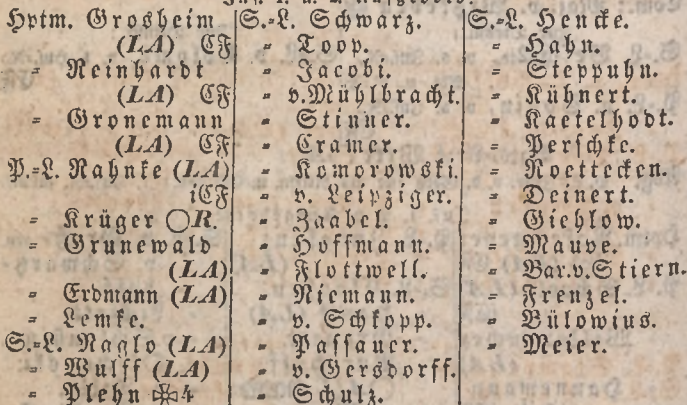 Hptm. Grosheim
(LA) CF
= Reinhardt
(LA) CF
= Gronemann
(LA) CF
P.=L. Rahnke (LA)
iCF
= Krüger ○R.
= Grunewald
(LA)
= Erdmann (LA)
= Lemke.
S.=L. Naglo (LA)
= Wulff (LA)
= Plehn ✠4
S.=L. Schwarz.
= Toop.
= Jacobi.
= v. Mühlbracht.
= Stinner.
= Cramer.
= Komorowski.
= v. Leipziger.
= Zaabel.
= Hoffmann.
= Flottwell.
= Niemann.
= v. Schkopp.
= Passauer.
= v. Gersdorff.
= Schulz.
S.=L. Hencke.
= Hahn.
= Steppuhn.
= Kühnert.
= Kaetelhodt.
= Perschke.
= Noettecken.
= Deinert.
= Giehlow.
= Mauve.
= Bar. v. Stiern.
= Frenzel.
= Bülowius.
= Meier.